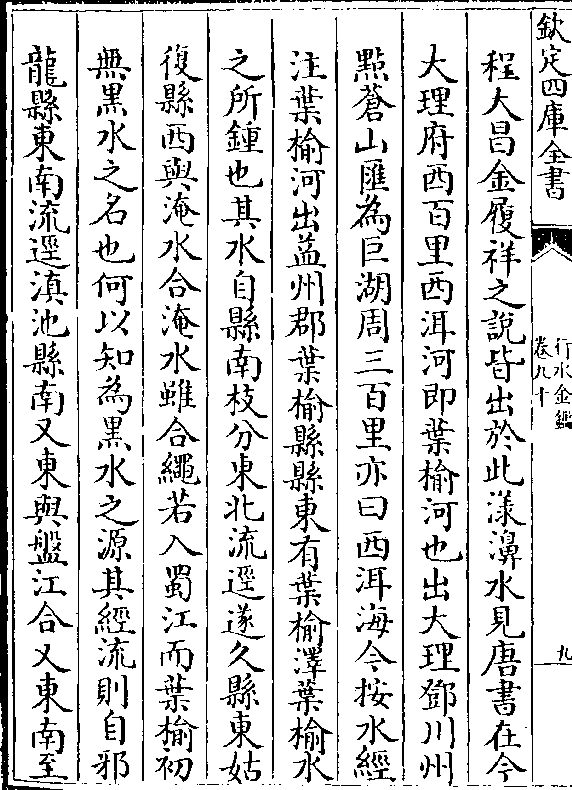 欽定四庫全書
行水金鑑
卷九十
九
程大昌金履祥之說皆出於此漾濞水見唐書在今
大理府西百里西洱河即葉榆河也出大理鄧川州
點蒼山匯為巨湖周三百里亦曰西洱海今按水經
注葉榆河出益州郡葉榆縣縣東有葉榆澤葉榆水
之所鍾也其水自縣南枝分東北流逕遂久縣東姑
復縣西與淹水合淹水雖合繩若入蜀江而葉榆初
無黑水之名也何以知為黑水之源其經流則自邪
龍縣東南流逕滇池縣南又東與盤江合又東南至